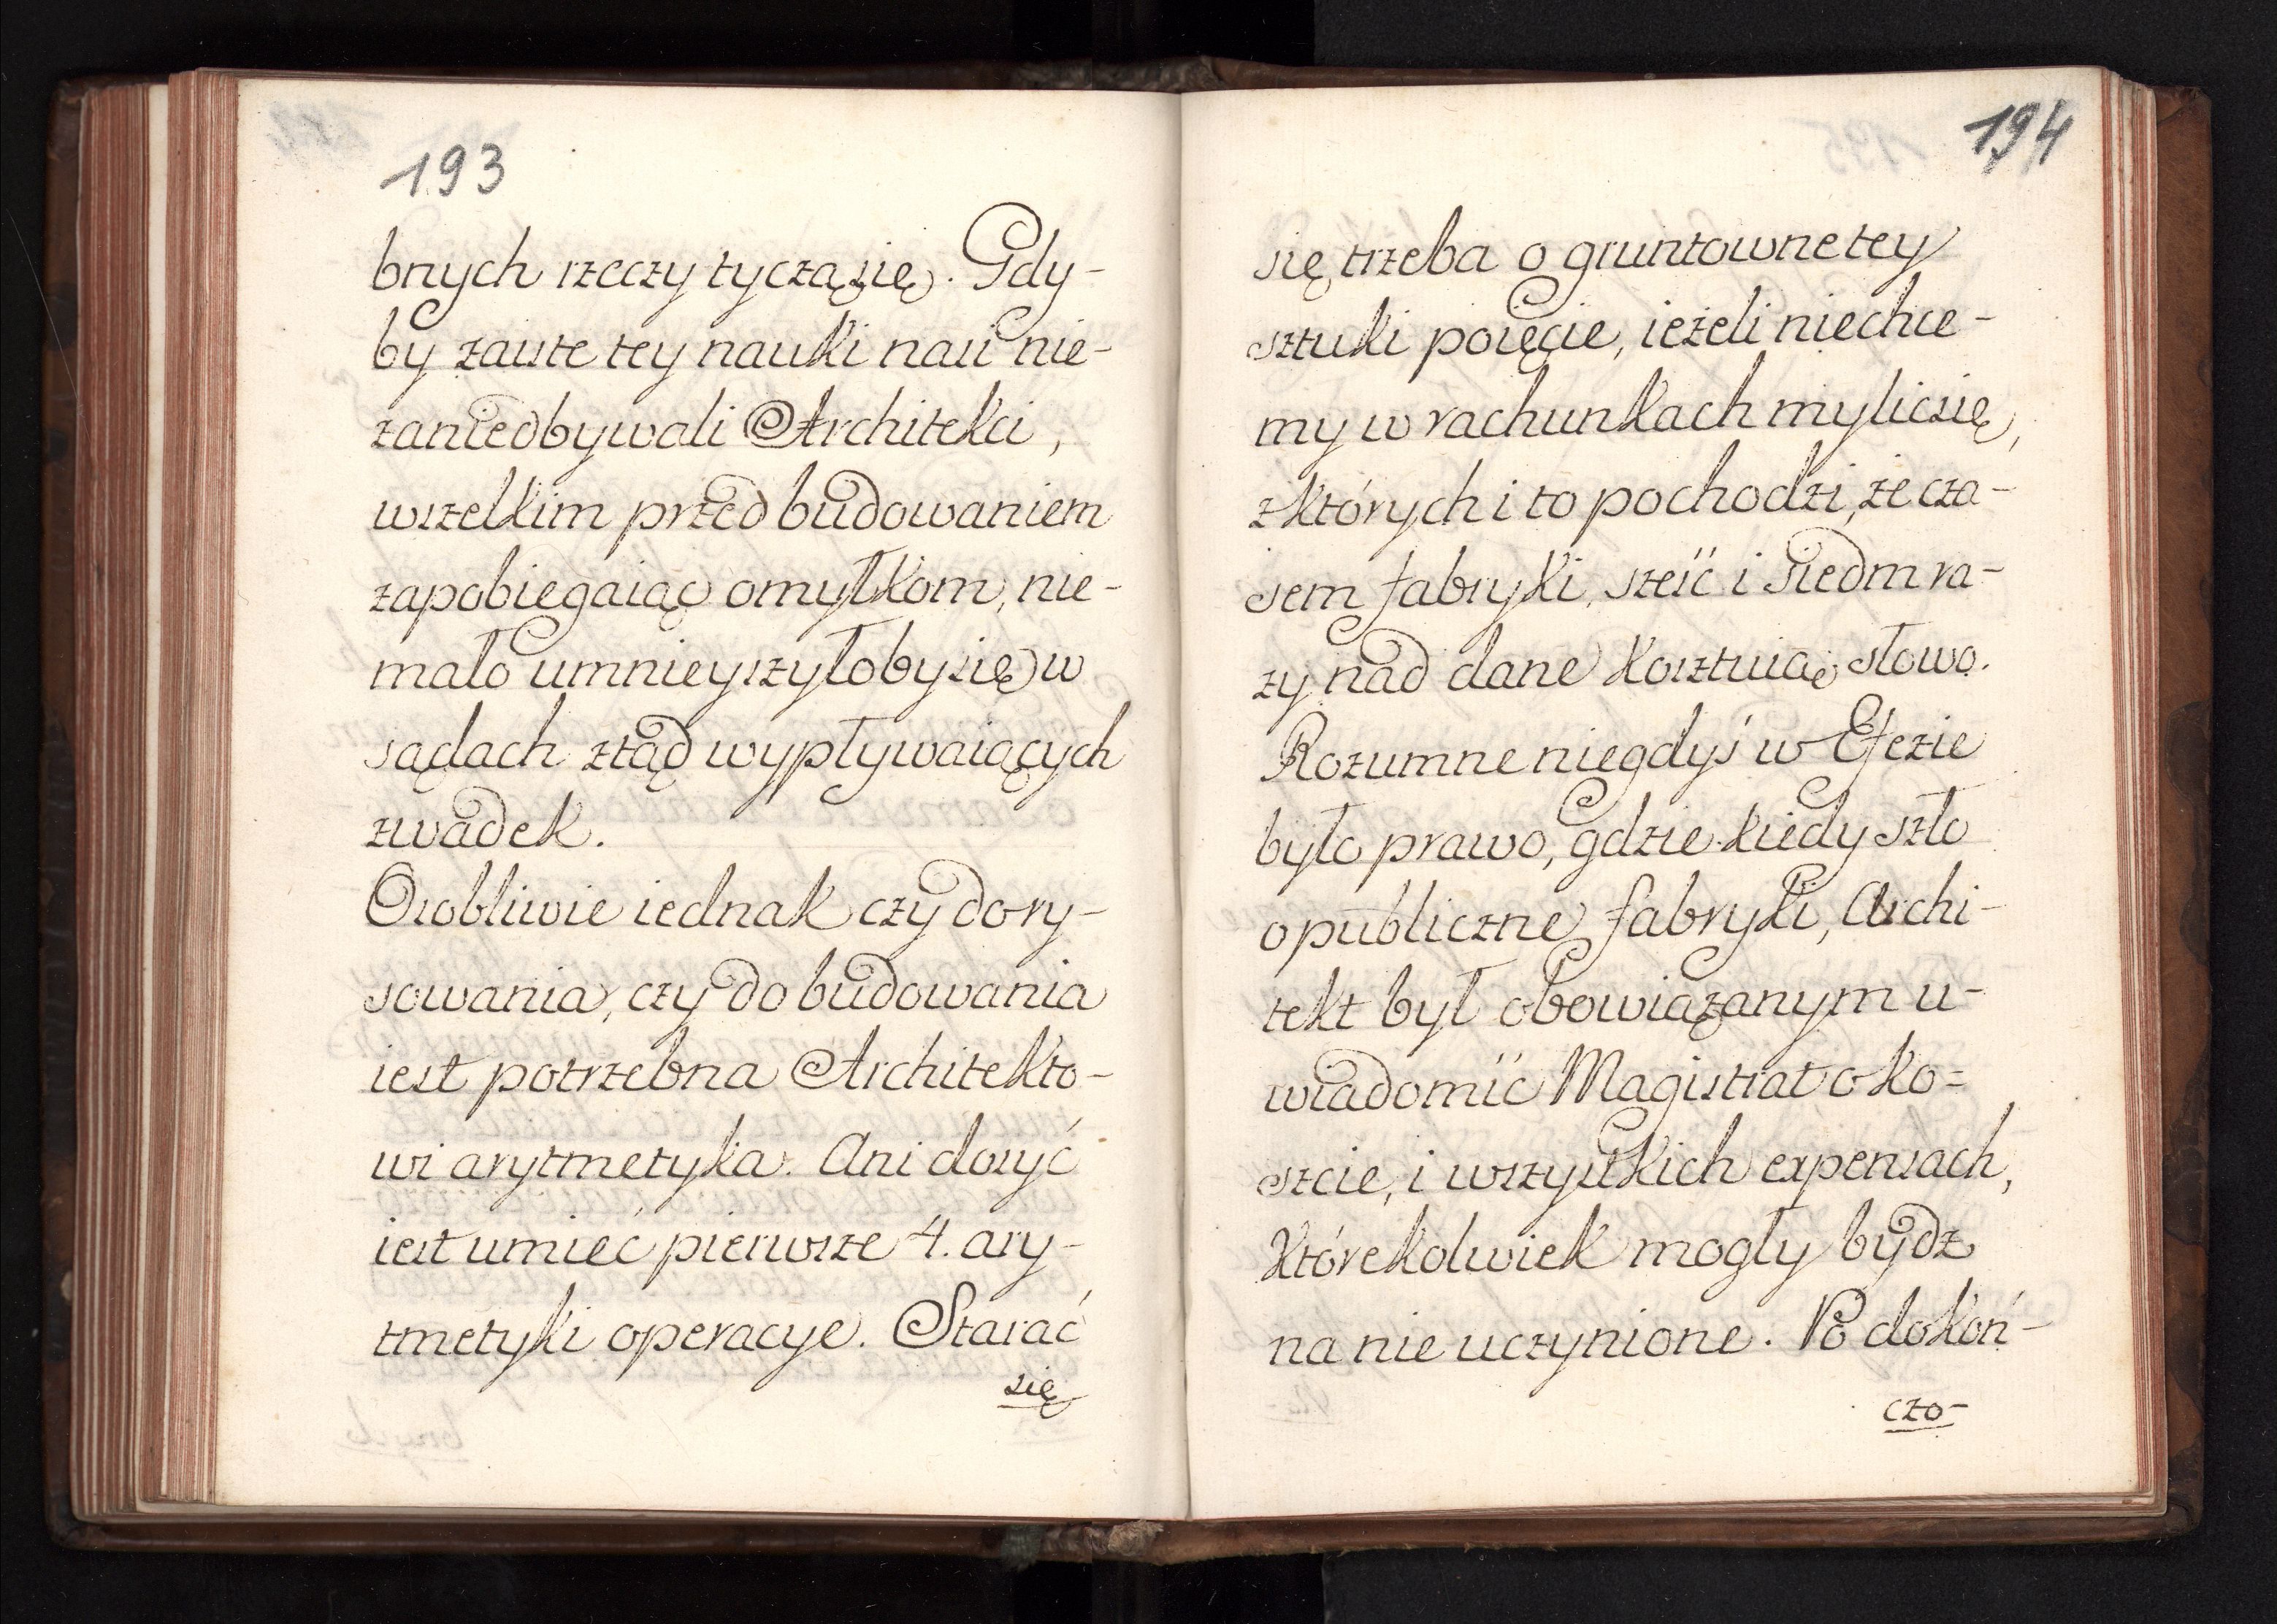 193
bnych rzeczy tyczą się. Gdy-
by zaiste tey nauki nasi nie-
zaniedbywali Architekci,
wszelkim przed budowaniem
zapobiegaiąc omyłkom, nie-
mało umnieyszyłoby się w
sądach ztąd wypływaiących
zwadek.
Osobliwie iednak czy do ry-
sowania, czy do budowania
iest potrzebna Architekto-
wi arytmetyka. Ani dosyć
iest umieć pierwsze 4. ary-
tmetyki operacye. Starać
się
194
się trzeba o gruntowne tey
sztuki poięcie, ieżeli niechce-
my w rachunkach mylić się,
z których i to pochodzi, że cza-
sem fabryki, sześć i siedm ra-
zy nad dane kosztuią słowo.
Rozumne niegdyś w Efezie
było prawo, gdzie kiedy szło
o publiczne fabryki, Archi-
tekt był obowiązanym u-
wiadomić Magistrat o ko=
szcie, i wszystkich expensach,
którekolwiek mogły bydz
na nie uczynione. Po dokoń-
czo-